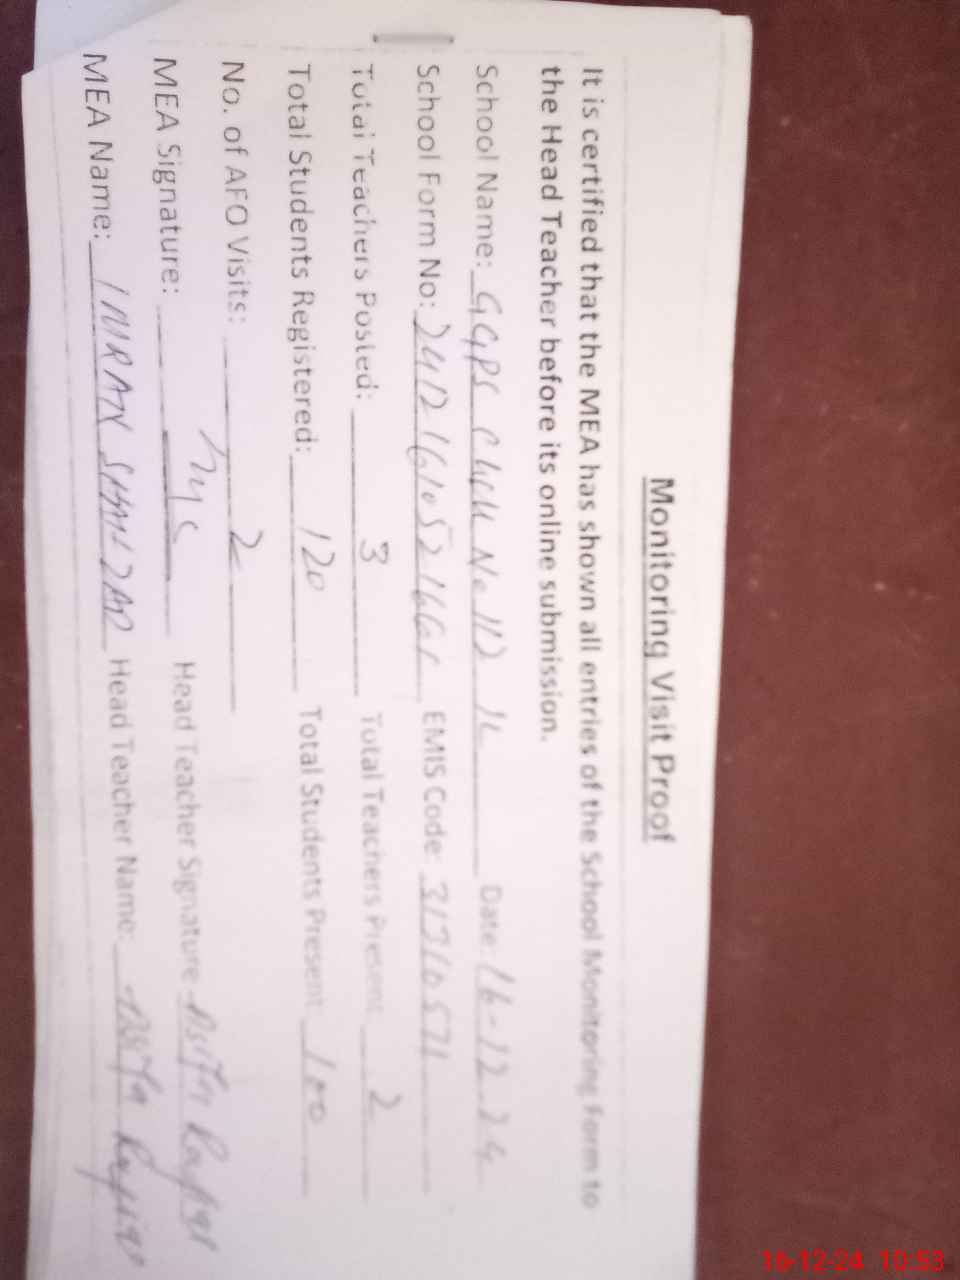 Monitoring Visit Proof
It is certified that the MEA has shown all entries of the School Monitoring Form to
the Head Teacher before its online submission.
School Name: GGPS CHCH No 112 1L Date: 16-12-24
School Form No: EMIS Code: 31310571
Total Teachers Posted: 3 Total Teachers Present 2
Total Students Registered: 120 Total Students Present: 100
No. of AFO Visits: 2
MEA Signature: Head Teacher Signature
MEA Name: IMRAN SHAHZAD Head Teacher Name:
16-12-24 10:53